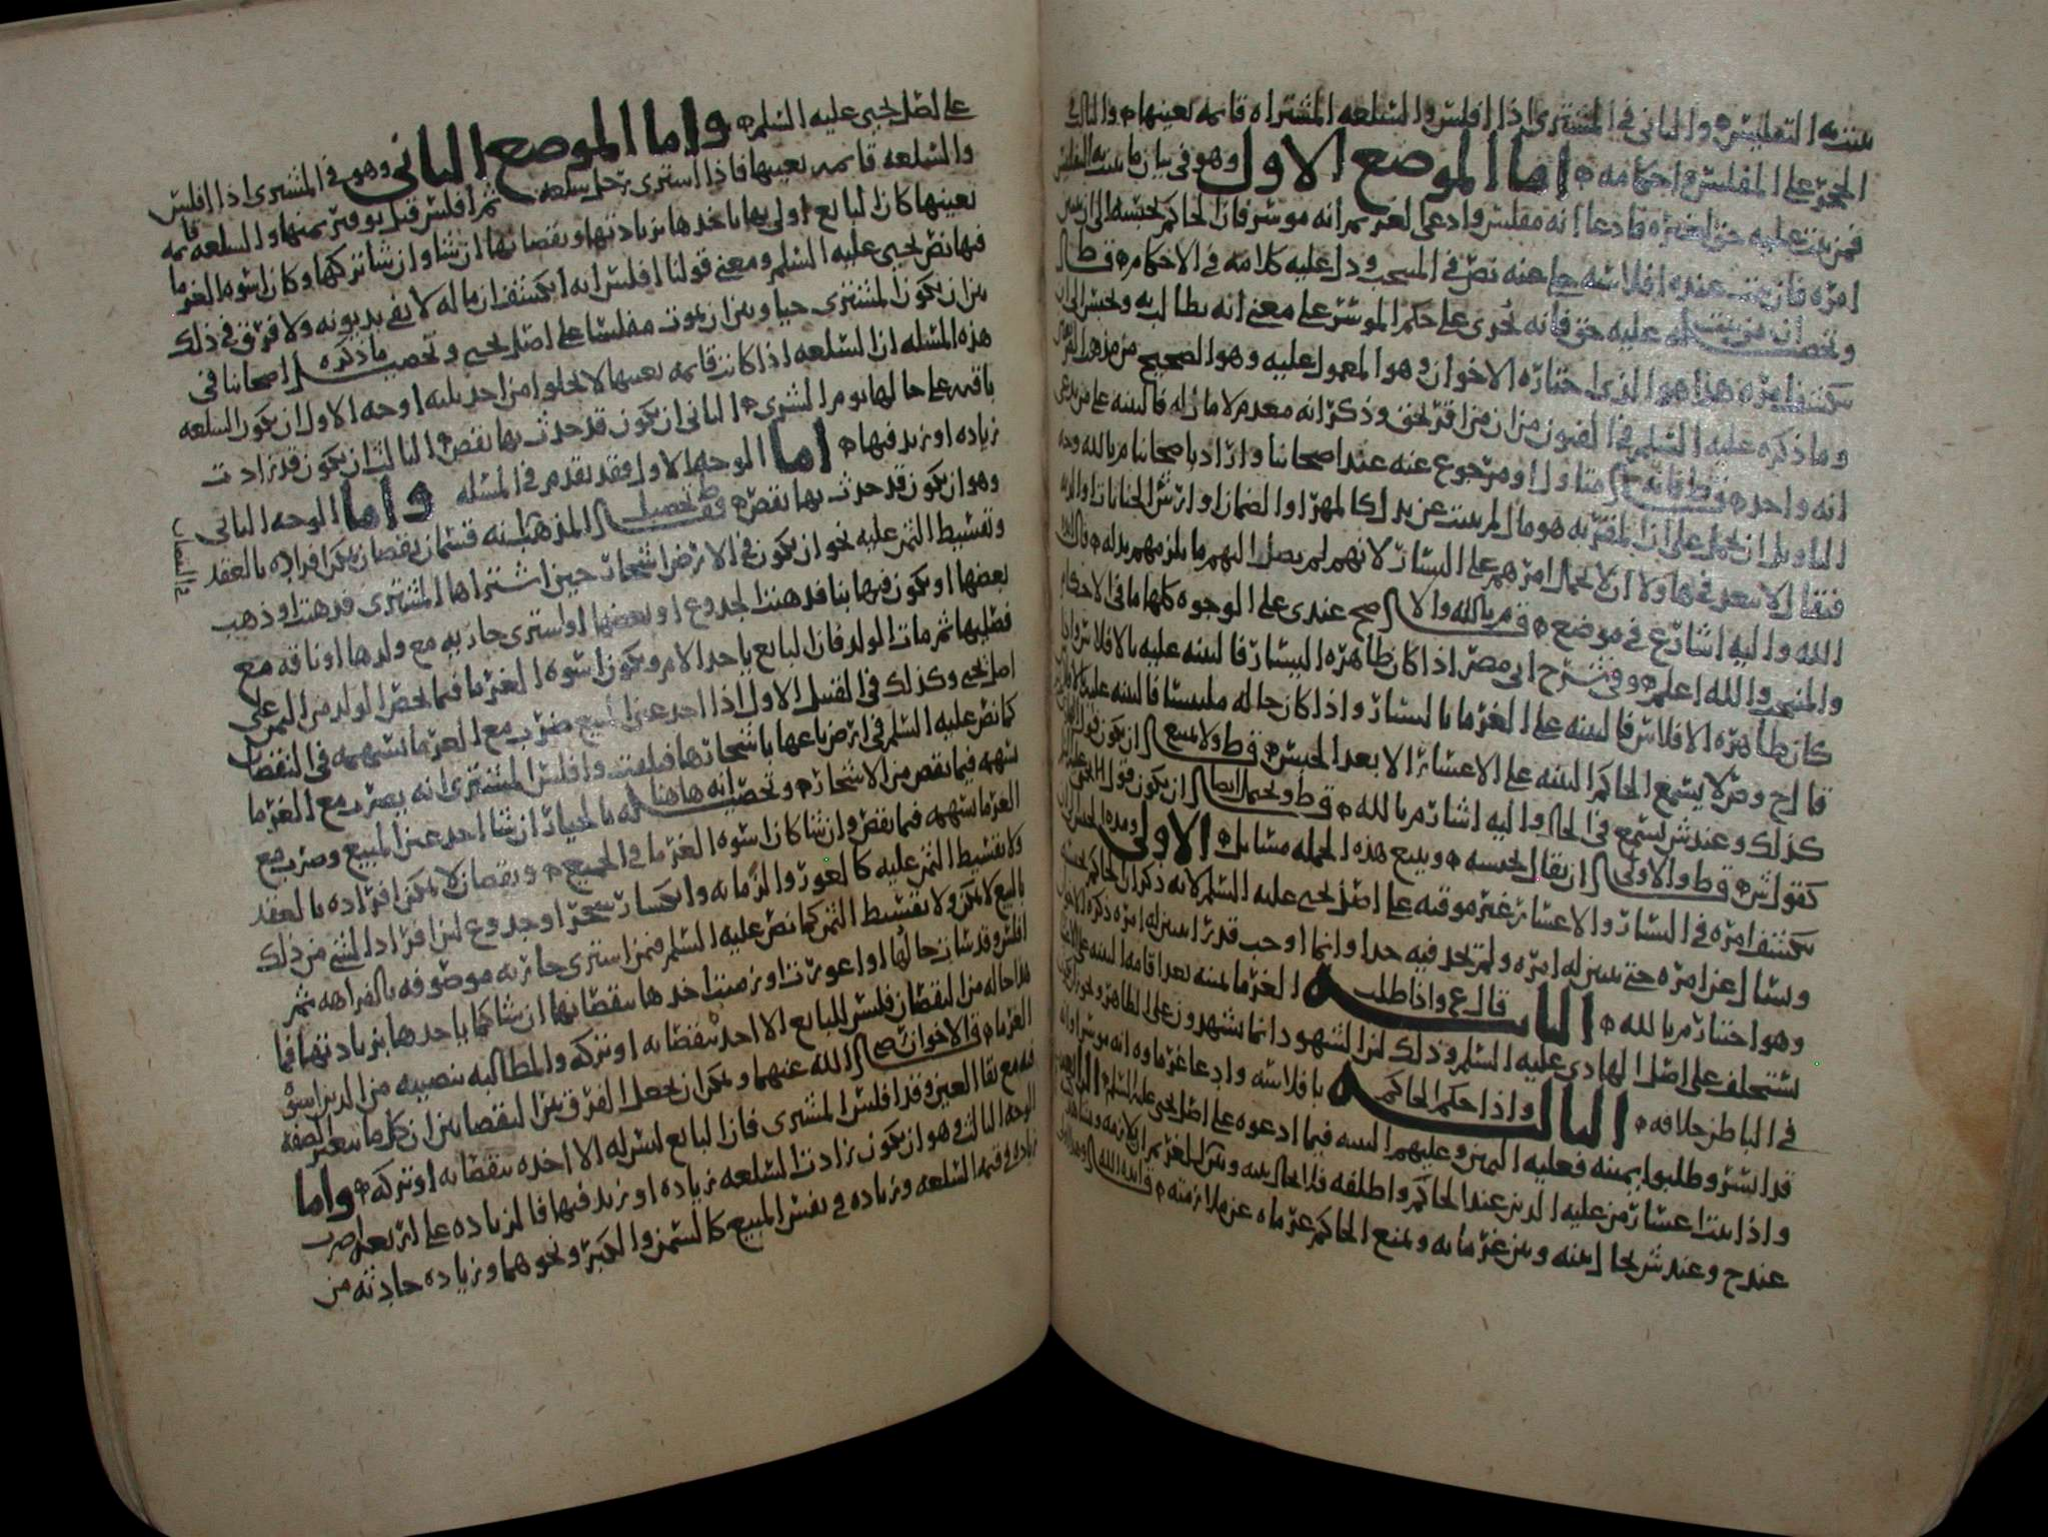 يثبت به التفليس والثاني في المشتري اذا افلس والسلعه المشتراه قائمه بعينها والثالث
الحجر على المفلس واحكامه اما الموضع الاول وهو في بيان ما يثبت به التفليس
فمن يثبت عليه حق لغيره فادعا انه مفلس وادعى الغريم انه موسر فان الحاكم يحبسه الى ان يتبين
امره فان يثبت عنده افلاسه خلا عنه نص في المنتخب ودل عليه كلامه في الاحكام قط
وتحصيل ان من يثبت له عليه حق فانه يجري على حكم الموسر على معنى انه يطالب به ويحبس الى ان
ينكشف امره هذا هو الذي اختاره الاخوان وهو المعمول عليه وهو الصحيح من مذهب
وما ذكره عليه السلم في الفنون من ان من اقر بحق وذكر انه معدم لا مال له فالبينه على من يدعي
انه واجد قط فانه متاول او مرجوع عنه عند اصحابنا واراد باصحابنا م بالله وجه
التاويل ان يحمل على ان المقر به هو مال لم يثبت عن بدل كالمهر او الضمان او ارش الجنايات
فيقال لا يبعد في هاولا ان لا يحمل امرهم على اليسار لانهم لم يصل اليهم ما يلزمهم بدله
الله واليه اشار ع في موضع ق م بالله والاصح عندي على الوجوه كلها ما في الاحكام
والمنتخب والله اعلم وفي شرح ابي مضر اذا كان ظاهره اليسار فالبينه عليه بالافلاس واذا
كان ظاهره الافلاس فالبينه على الغرما باليسار واذا كان حاله ملتبسا فالبينه عليه
قال ح وص لا يسمع الحاكم البينه على الاعسار الا بعد الحبس قط ولا يمتنع ان يكون
كذلك وعند ش يسمع في الحال واليه اشار م بالله قط ويحتمل ايضا ان يكون قول
كقول ش قط والاولى ان يقال يحبسه ويتبع هذه الجمله مسائل الاولى ومده الحبس
ينكشف امره في اليسار والاعسار غير موقته على اصل يحيى عليه السلم لانه ذكر ان الحاكم يحبسه
ويسال عن امره حتى يتبين له امره ولم يحد فيه حدا وانما اوجب قدر ما يتبين له امره
وهو اختيار م بالله الثانيه قال ع واذا طلب الغرما يمينه بعد اقامه البينه
يستحلف على اصل الهادي عليه السلم وذلك لان الشهود انما يشهدون على الظاهر
في الباطن خلافه الثالثه واذا حكم الحاكم بافلاسه وادعا غرماوه انه
قد ايسر وطلبوا يمينه فعليه اليمين وعليهم البينه فيما ادعوه على اصل يحيى عليه السلم
واذا يثبت اعسار من عليه الدين عند الحاكم واطلقه فلا يحال بينه وبين الغريم
عند ح وعند ش يحال بينه وبين غرمائه ويمنع الحاكم غرماه عن ملازمته
على اصل يحيى عليه السلم واما الموضع الثاني وهو في المشتري اذا افلس
والسلعه قائمه بعينها فاذا اشترى رجل سلعه ثم افلس قبل توفير ثمنها والسلعه قائمه
بعينها كان البائع اولى بها ياخذها بزيادتها ونقصانها ان شا وان شا تركها وكان اسوه الغرما
فيها نص يحيى عليه السلم ومعنى قولنا افلس انه انكشف ان ماله لا يفي بديونه ولا فرق في ذلك
بين ان يكون المشتري حيا وبين ان يموت مفلسا على اصل يحيى وتحصيل ما ذكره اصحابنا في
هذه المسله ان السلعه اذا كانت قائمه بعينها لا تخلوا من احد ثلثه اوجه الاول ان تكون السلعه
باقيه على حالها يوم الشرى الثاني ان يكون قد حدث بها نقص الثالث ان يكون قد زادت
زياده او زيد فيها اما الوجه الاول فقد تقدم في المسله واما الوجه الثاني
وهو ان يكون قد حدث بها نقص فتحصيل المذهب انه قسمان نقصان يمكن افراده بالعقد
في النقصان
وتقسيط الثمن عليه نحو ان يكون في الارض اشجار حين اشتراها المشتري فذهبت او ذهب
بعضها او يكون فيها بنا فذهبت الجدوع او بعضها او اشترى جاريه مع ولدها او ناقه مع
فصيلها ثم مات الولد فان البائع ياخذ الام ويكون اسوه الغرما فيما يخص الولد من الثمن على
اصل يحيى وكذلك في الفصل الاول اذا اخذ عين المبيع ضرب مع الغرما بسهمه في النقصان
كما نص عليه السلم في ارض باعها باشجارها فتلفت وافلس المشتري انه يضرب مع الغرما
بسهمه فيما نقص من الاشجار وتحصيله انه هاهنا له بالخيار ان شا اخذ عين المبيع وضرب مع
الغرما بسهمه فيما نقص وان شا كان اسوه الغرما في الجميع ونقصان لا يمكن افراده بالعقد
ولا تقسيط الثمن عليه كالعور والزمانه وانكسار شجر او جدوع لان افراد الشي من ذلك
بالبيع لا يمكن ولا تقسيط الثمن كما نص عليه السلم فيمن اشترى جاريه موصوفه بالفراهه ثم
افلس وقد شان حالها او اعورت او زمنت اخذها بنقصانها ان شا كما ياخذها بزيادتها فما
هذا حاله من النقصان فليس للبائع الا اخذ بنقصانه او تركه والمطالبه بنصيبه من الدين اسوه
الغرما ق الاخوان رضي الله عنهما ويمكن ان يجعل الفرق بين النقصانين ان كل ما يتغير الصفه
فيه مع بقا العين وقد افلس المشتري فان البائع ليس له الا اخذه بنقصانه او تركه واما
الوجه الثالث وهو ان يكون زادت السلعه زياده او زيد فيها فالزياده على اربعه اضرب
زياده في قيمه السلعه وزياده في نفس المبيع كالسمن والكبر ونحوهما وزياده حادثه من